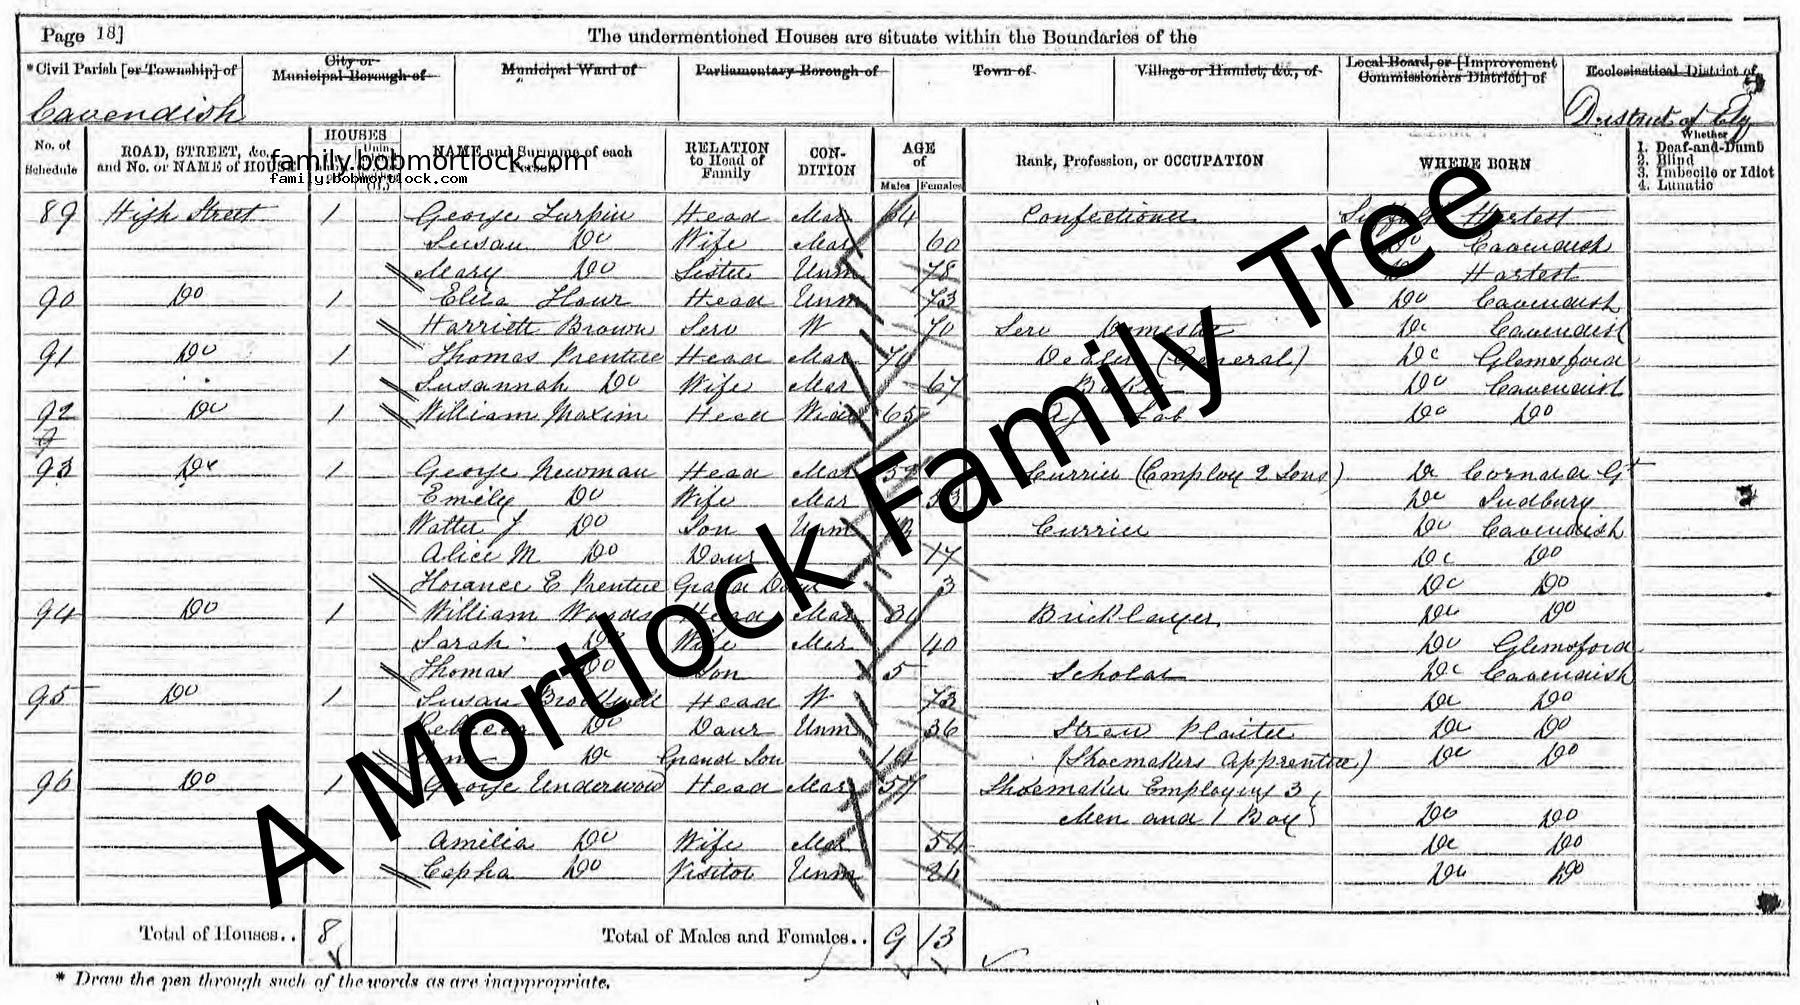 Page 18]
The undermentioned Houses are situate within the Boundaries of the
*Civil Parish [or Township] of
City or Municipal Borough of
Municipal Ward of
Parliamentary Borough of
Town of
Village or Hamlet, &c., of
Local Board, or [Improvement Commissioners District] of
Ecclesiastical District of
Cavendish
District of Ely
No. of Schedule
ROAD, STREET, &c., and No. or NAME of HOUSE
HOUSES
NAME and Surname of each Person
RELATION to Head of Family
CONDITION
AGE of
Males
Females
Rank, Profession, or OCCUPATION
WHERE BORN
Whether
1. Deaf-and-Dumb
2. Blind
3. Imbecile or Idiot
4. Lunatic
family.bobmortlock.com
family.bobmortlock.com
89 High Street 1 George Turpin Head Mar 64 Confectioner Suffolk Hartest
Susan Do Wife Mar 60 Do Cavendish
Mary Do Sister Unm 78 Do Hartest
90 Do 1 Eliza Head Unm 73 Do Cavendish
Harriett Brown Serv W 70 Serv Domestic Do Cavendish
91 Do 1 Thomas Prentice Head Mar 70 Dealer (General) Do Glemsford
Susannah Do Wife Mar 67 Baker Do Cavendish
92 Do 1 William Maxim Head 65 Ag Lab Do Do
93 Do 1 George Newman Head Mar Currier (Employ 2 Sons) Do Cornard Gt
Emily Do Wife Mar 53 Do Sudbury
Walter J Do Son Unm Currier Do Cavendish
Alice M Do Daur 17 Do Do
Florance E Prentice Grand Daur 3 Do Do
94 Do 1 William Woods Head Mar Bricklayer. Do Do
Sarah Do Wife Mar 40 Do Glemsford
Thomas Do Son 5 Scholar Do Cavendish
95 Do 1 Susan Head W 73 Do Do
Rebecca Do Daur Unm 36 Straw Plaiter Do Do
Do Grand Son (Shoemakers apprentice) Do Do
96 Do 1 George Underwood Head Mar 57 Shoemaker Employing 3
Men and 1 Boy} Do Do
Amelia Do Wife Mar Do Do
Do Visitor Unm Do Do
Total of Houses.. 8
Total of Males and Females.. 9 13
* Draw the pen through such of the words as are inappropriate.
A Mortlock Family Tree